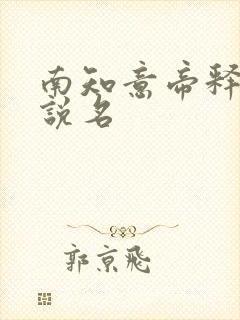 南知意帝释
說名
郭京飛